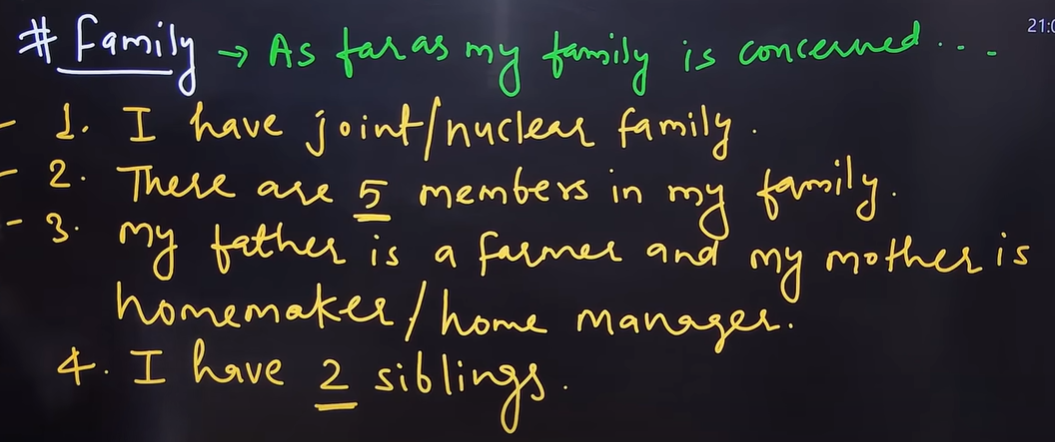 # Family → As far as my family is concerned...
- 1. I have joint/nuclear family.
- 2. There are 5 members in my family.
- 3. My father is a farmer and my mother is
homemaker/home manager.
4. I have 2 siblings.